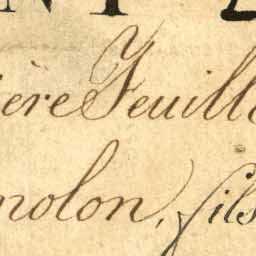 NT
ière Feuill
nolon, fils